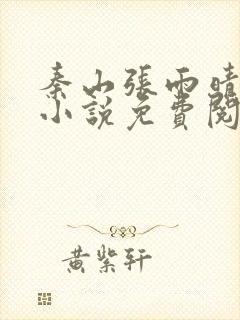 秦山張雨晴
小說免費閱
黃紫軒